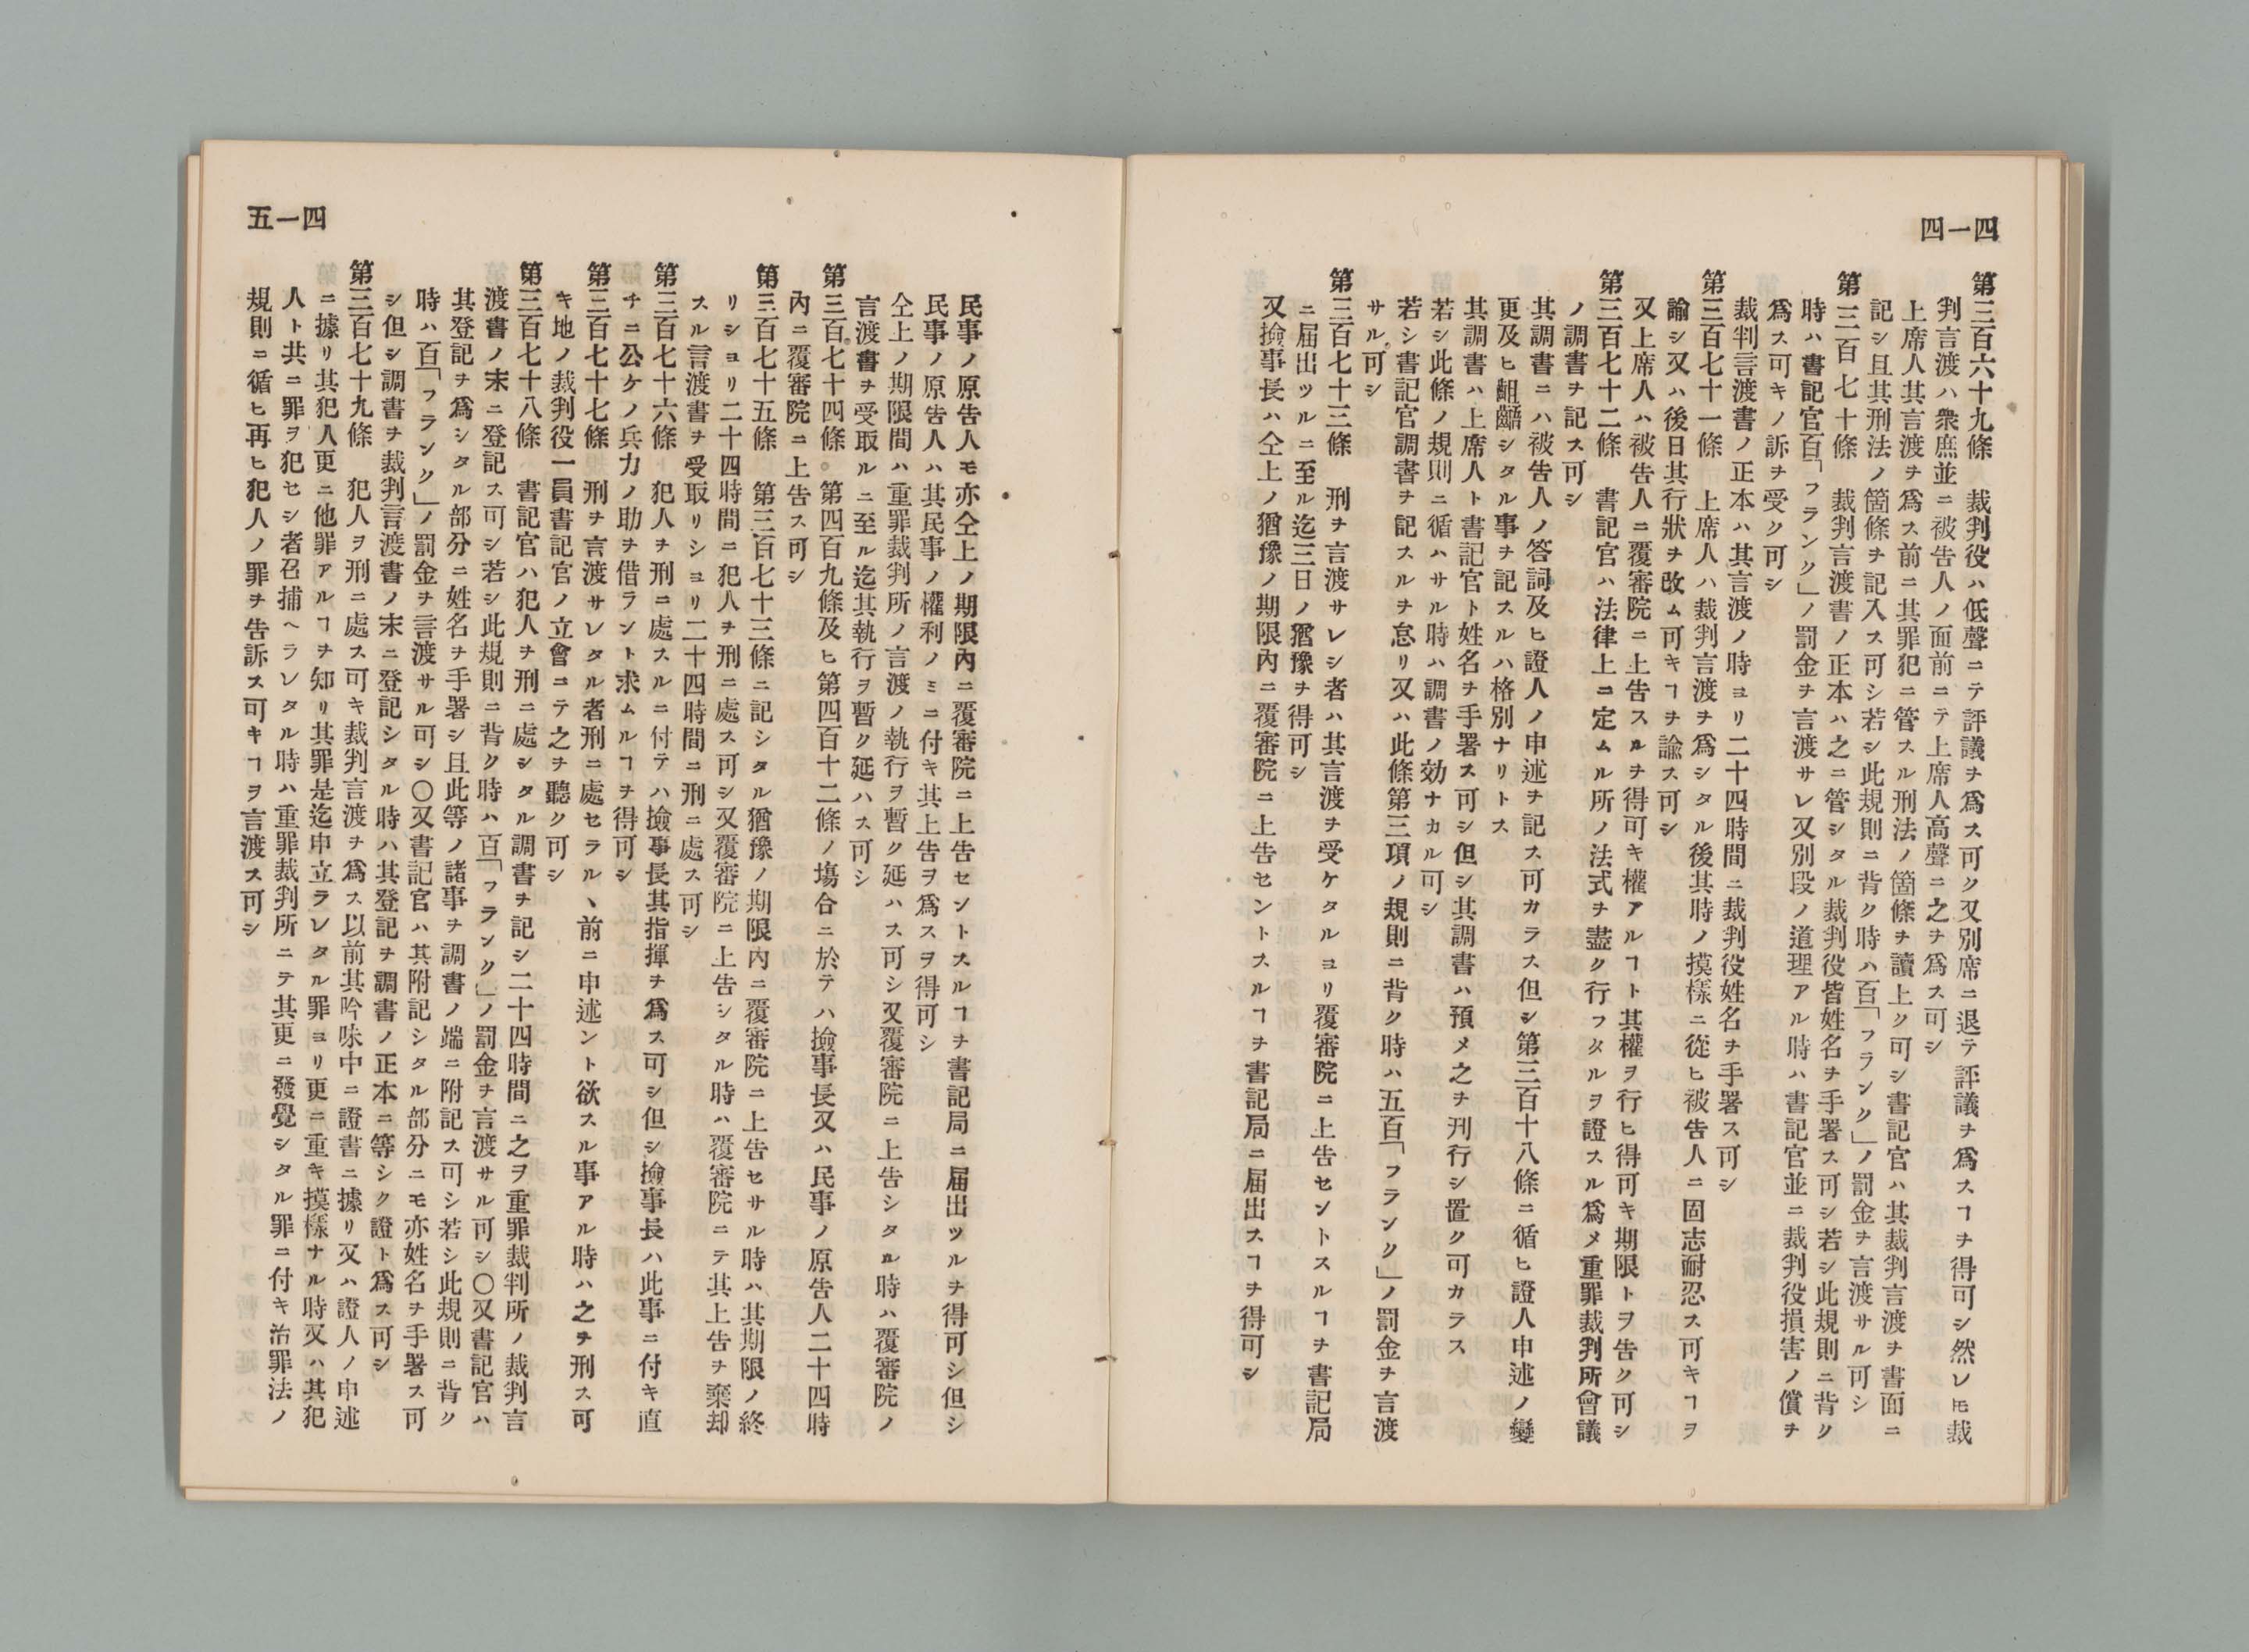 四一四
第三百六十九條　裁判役ハ低聲ニテ評議ヲ爲ス可ク又別席ニ退テ評議ヲ爲スヿヲ得可シ然レ𪜈裁
判言渡ハ衆庶並ニ被告人ノ面前ニテ上席人高聲ニ之ヲ爲ス可シ
上席人其言渡ヲ爲ス前ニ其罪犯ニ管スル刑法ノ箇條ヲ讀上ク可シ書記官ハ其裁判言渡ヲ書面ニ
記シ且其刑法ノ箇條ヲ記入ス可シ若シ此規則ニ背ク時ハ百「フランク」ノ罰金ヲ言渡サル可シ
第三百七十條　裁判言渡書ノ正本ハ之ニ管シタル裁判役皆姓名ヲ手署ス可シ若シ此規則ニ背ク
時ハ書記官百「フランク」ノ罰金ヲ言渡サレ又別段ノ道理アル時ハ書記官並ニ裁判役損害ノ償ヲ
爲ス可キノ訴ヲ受ク可シ
裁判言渡書ノ正本ハ其言渡ノ時ヨリ二十四時間ニ裁判役姓名ヲ手署ス可シ
第三百七十一條　上席人ハ裁判言渡ヲ爲シタル後其時ノ摸樣ニ從ヒ被告人ニ固志耐忍ス可キヿヲ
諭シ又ハ後日其行狀ヲ改ム可キヿヲ諭ス可シ
又上席人ハ被告人ニ覆審院ニ上告スルヲ得可キ權アルヿト其權ヲ行ヒ得可キ期限トヲ告ク可シ
第三百七十二條　書記官ハ法律上ニ定ムル所ノ法式ヲ盡ク行フタルヲ證スル爲メ重罪裁判所會議
ノ調書ヲ記ス可シ
其調書ニハ被告人ノ答詞及ヒ證人ノ申述ヲ記ス可カラス但シ第三百十八條ニ循ヒ證人申述ノ變
更及ヒ齟齬シタル事ヲ記スルハ格別ナリトス
其調書ハ上席人ト書記官ト姓名ヲ手署ス可シ但シ其調書ハ預メ之ヲ刋行シ置ク可カラス
若シ此條ノ規則ニ循ハサル時ハ調書ノ効ナカル可シ
若シ書記官調書ヲ記スルヲ怠リ又ハ此條第三項ノ規則ニ背ク時ハ五百「フランク」ノ罰金ヲ言渡
サル可シ
第三百七十三條　刑ヲ言渡サレシ者ハ其言渡ヲ受ケタルヨリ覆審院ニ上告セントスルヿヲ書記局
ニ届出ツルニ至ル迄三日ノ猶豫ヲ得可シ
又撿事長ハ仝上ノ猶豫ノ期限內ニ覆審院ニ上告セントスルヿヲ書記局ニ届出スヿヲ得可シ
四一五
民事ノ原告人モ亦仝上ノ期限內ニ覆審院ニ上告セントスルヿヲ書記局ニ届出ツルヲ得可シ但シ
民事ノ原告人ハ其民事ノ權利ノミニ付キ其上告ヲ爲スヲ得可シ
仝上ノ期限間ハ重罪裁判所ノ言渡ノ執行ヲ暫ク延ハス可シ又覆審院ニ上告シタル時ハ覆審院ノ
言渡書ヲ受取ルニ至ル迄其執行ヲ暫ク延ハス可シ
第三百七十四條　第四百九條及ヒ第四百十二條ノ塲合ニ於テハ撿事長又ハ民事ノ原告人二十四時
內ニ覆審院ニ上告ス可シ
第三百七十五條　第三百七十三條ニ記シタル猶豫ノ期限內ニ覆審院ニ上告セサル時ハ其期限ノ終
リショリ二十四時間ニ犯人ヲ刑ニ處ス可シ又覆審院ニ上告シタル時ハ覆審院ニテ其上告ヲ棄却
スル言渡書ヲ受取リショリ二十四時間ニ刑ニ處ス可シ
第三百七十六條　犯人ヲ刑ニ處スルニ付テハ撿事長其指揮ヲ爲ス可シ但シ撿事長ハ此事ニ付キ直
チニ公ケノ兵力ノ助ヲ借ラント求ムルヿヲ得可シ
第三百七十七條　刑ヲ言渡サレタル者刑ニ處セラルヽ前ニ申述ント欲スル事アル時ハ之ヲ刑ス可
キ地ノ裁判役一員書記官ノ立會ニテ之ヲ聽ク可シ
第三百七十八條　書記官ハ犯人ヲ刑ニ處シタル調書ヲ記シ二十四時間ニ之ヲ重罪裁判所ノ裁判言
渡書ノ末ニ登記ス可シ若シ此規則ニ背ク時ハ百「フランク」ノ罰金ヲ言渡サル可シ〇又書記官ハ
其登記ヲ爲シタル部分ニ姓名ヲ手署シ且此等ノ諸事ヲ調書ノ端ニ附記ス可シ若シ此規則ニ背ク
時ハ百「フランク」ノ罰金ヲ言渡サル可シ〇又書記官ハ其附記シタル部分ニモ亦姓名ヲ手署ス可
シ但シ調書ヲ裁判言渡書ノ末ニ登記シタル時ハ其登記ヲ調書ノ正本ニ等シク證ト爲ス可シ
第三百七十九條　犯人ヲ刑ニ處ス可キ裁判言渡ヲ爲ス以前其吟味中ニ證書ニ據リ又ハ證人ノ申述
ニ據リ其犯人更ニ他罪アルヿヲ知リ其罪是迄申立ラレタル罪ヨリ更ニ重キ摸樣ナル時又ハ其犯
人ト共ニ罪ヲ犯セシ者召捕ヘラレタル時ハ重罪裁判所ニテ其更ニ發覺シタル罪ニ付キ治罪法ノ
規則ニ循ヒ再ヒ犯人ノ罪ヲ告訴ス可キヿヲ言渡ス可シ